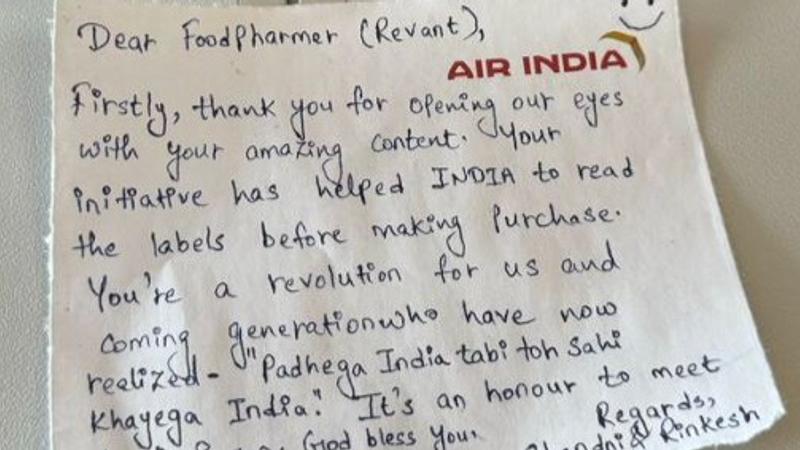 Dear FoodPharmer (Revant),
AIR INDIA
Firstly, thank you for opening our eyes
with your amazing content. Your
initiative has helped INDIA to read
the labels before making Purchase.
You're a revolution for us and
coming generation who have now
realized - "Padhega India tabi toh Sahi
Khayega India." It's an honour to meet
God bless you.
Regards,
& Rinkesh